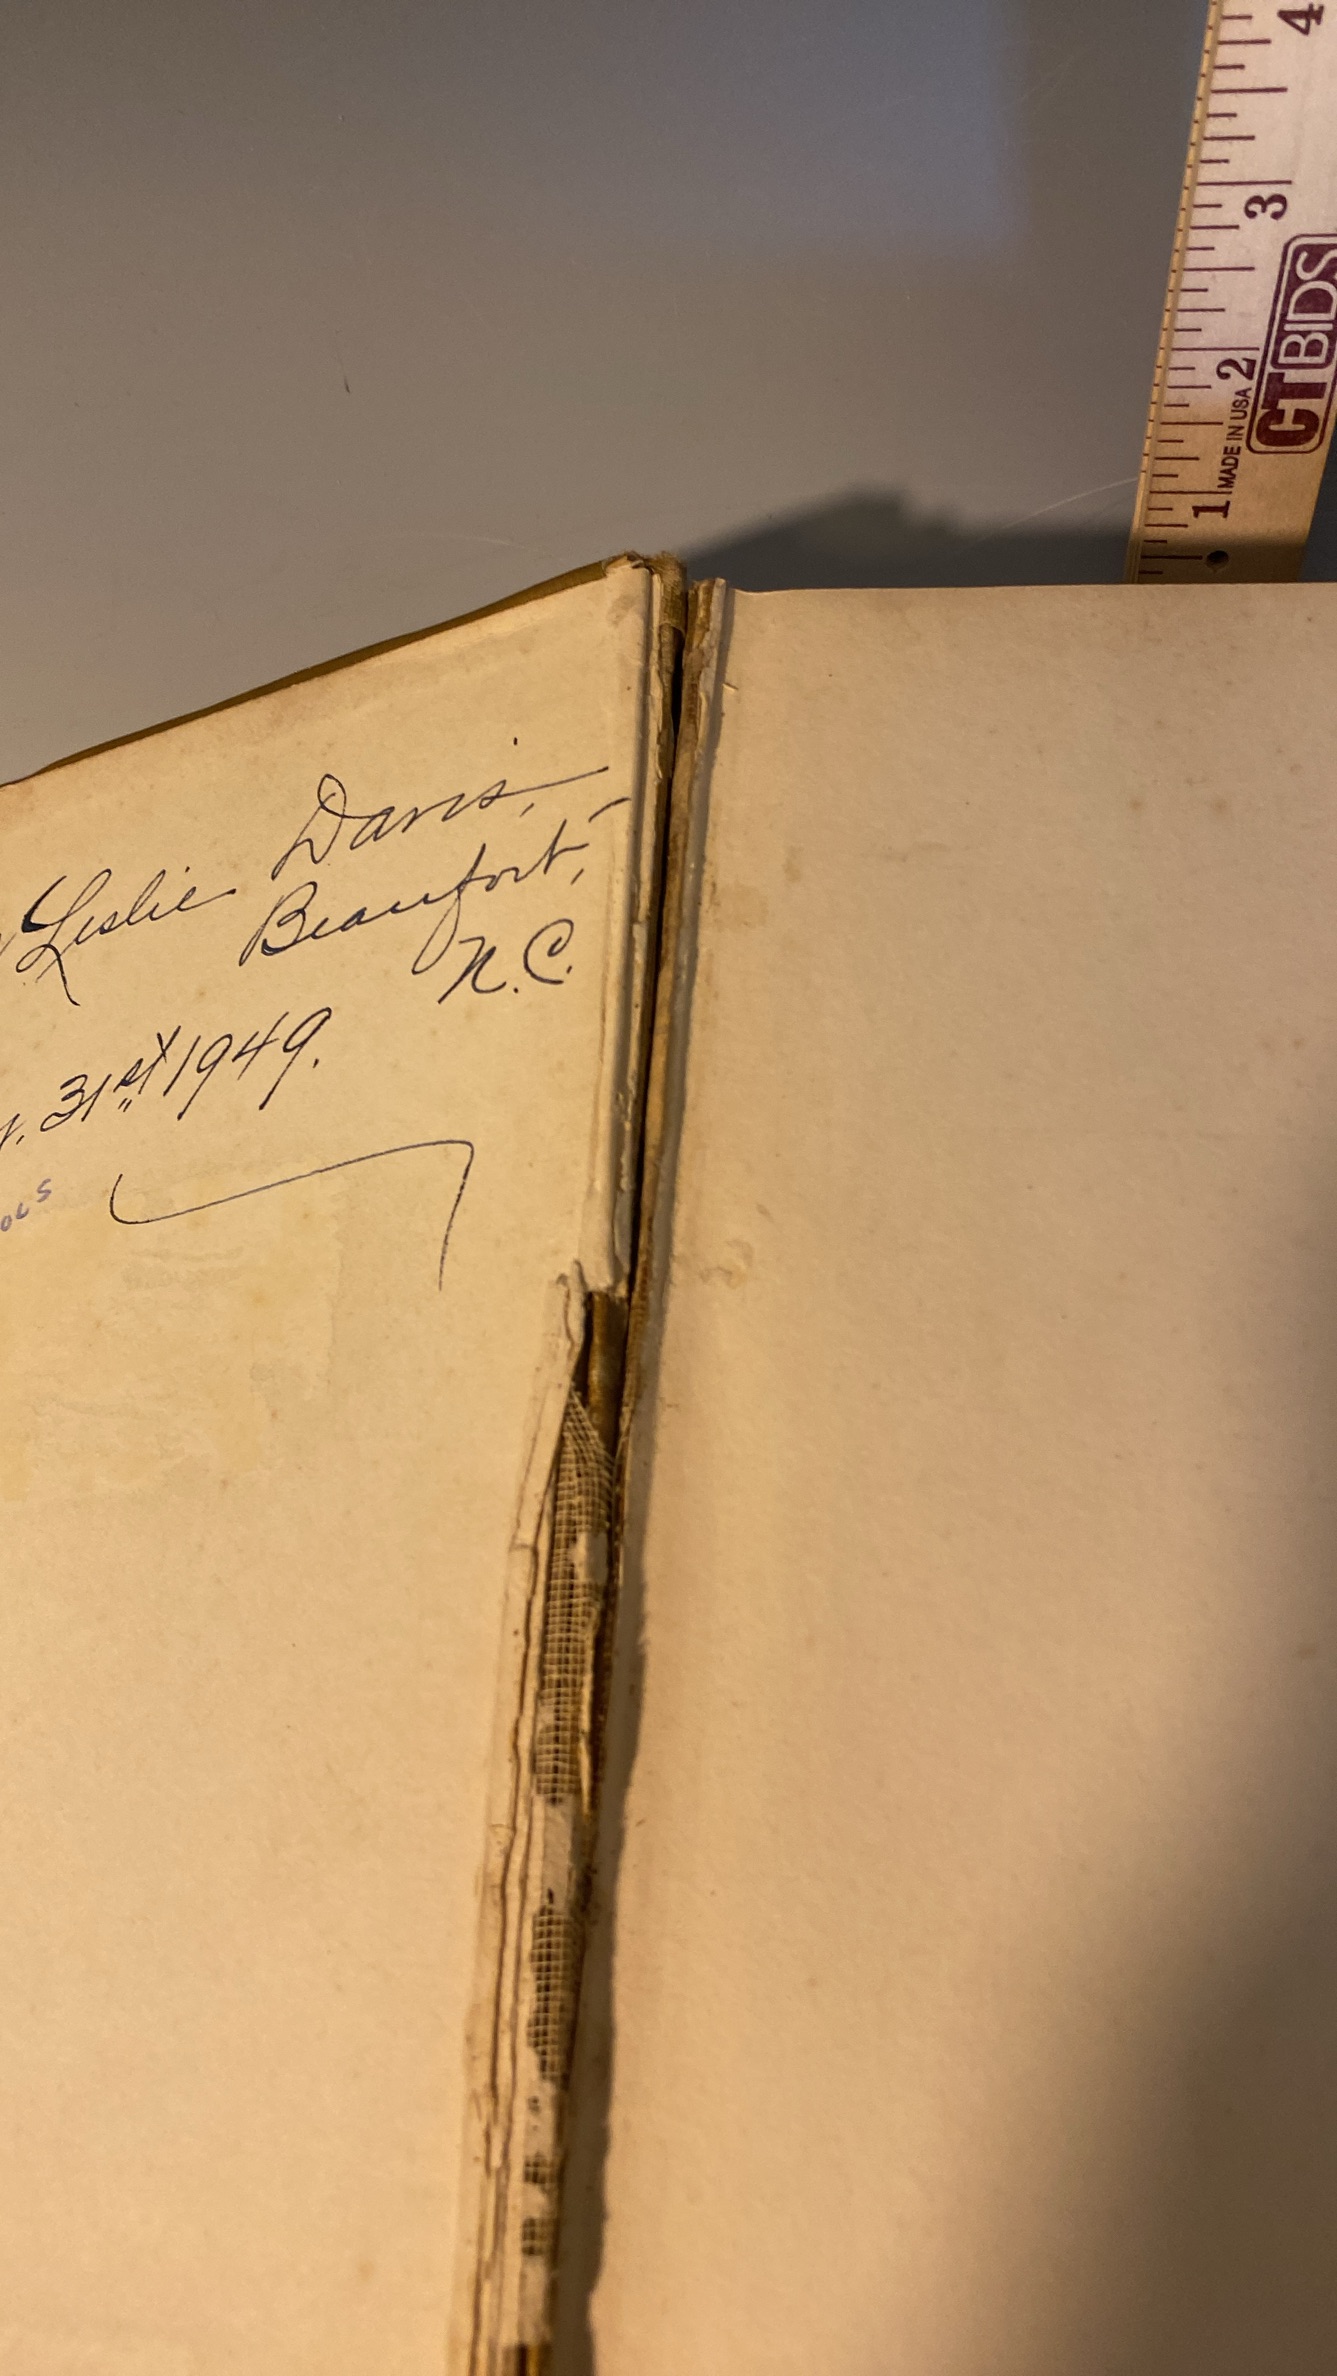 4
3
2
1
MADE IN USA
CTBIDS
Leslie Davis,
Beaufort,
N.C.
31st 1949.